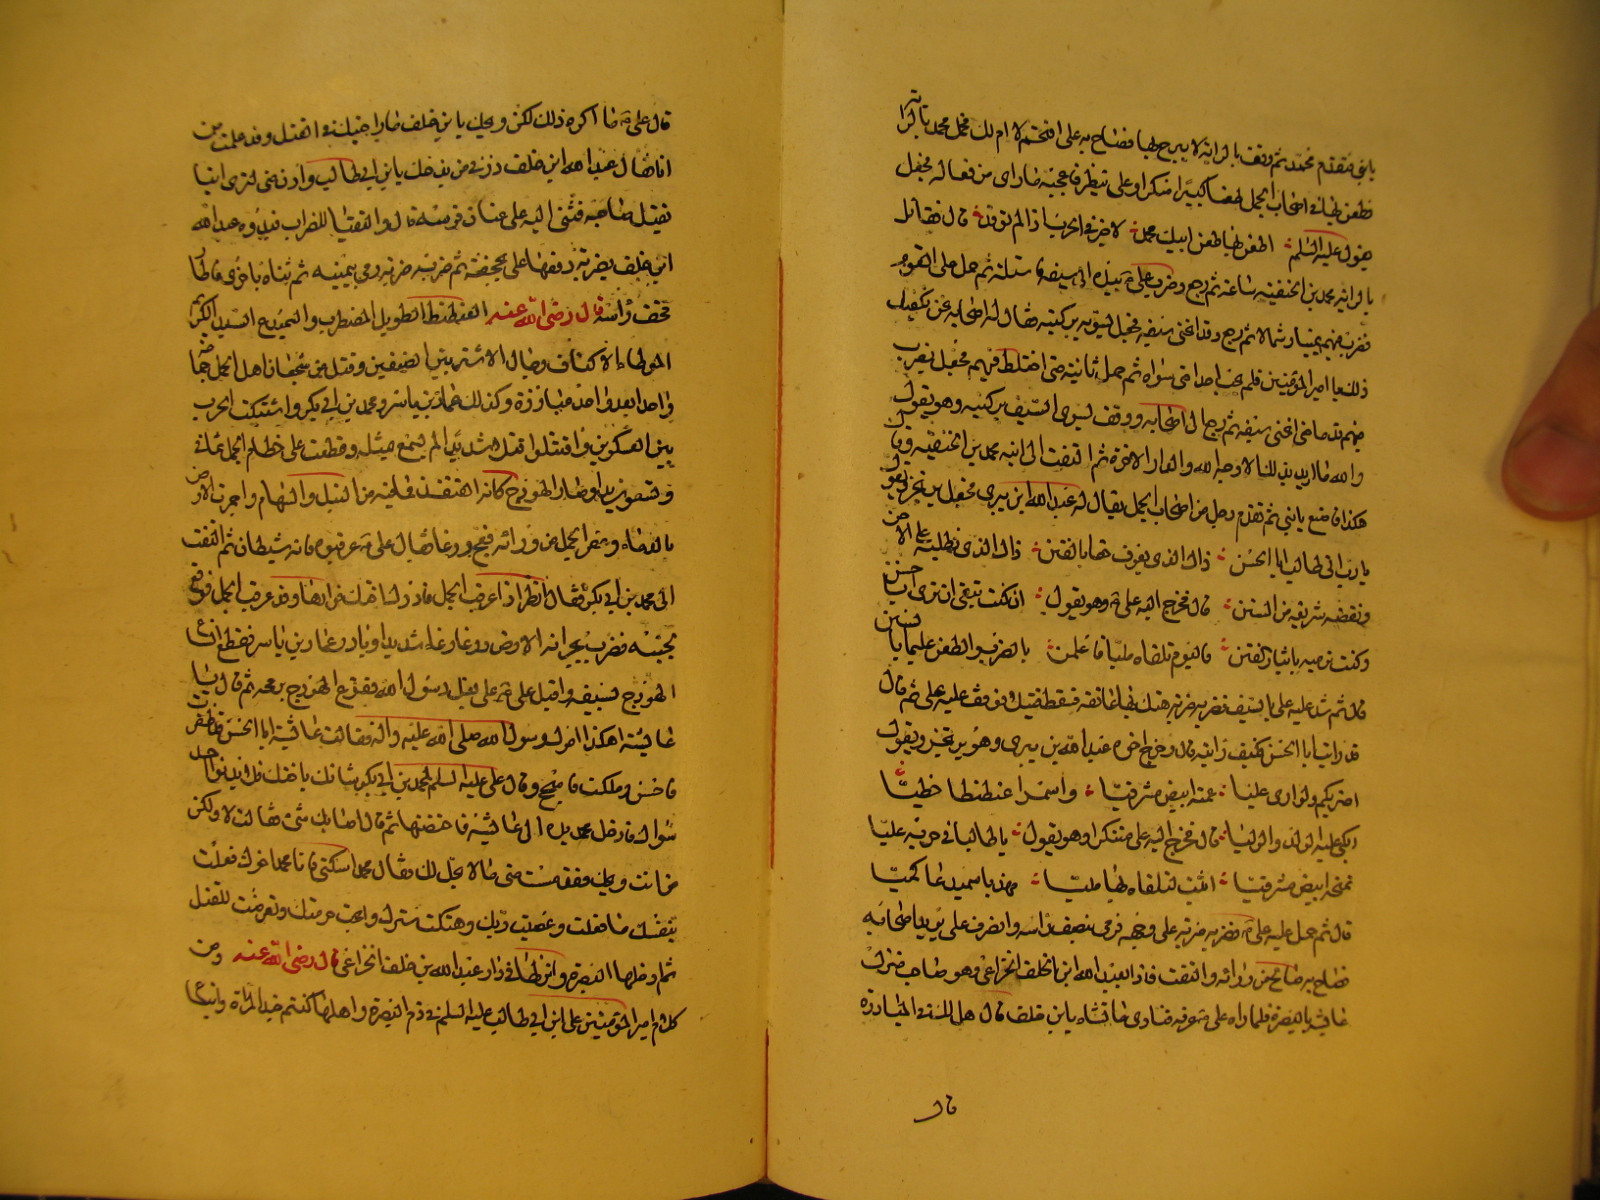 يا بني فتقدم محمد ثم وقف بالراية لا يبرح بها فصاح به علي اقتحم لا ام لك فحمل محمد بالراية
فطعن بها في اصحاب الجمل طعنا كثيرا منكرا وعلي ينظر فاعجبه ما راى من فعاله فجعل
يقول عليه السلم اطعن بها طعن ابيك محمد لا خير في الحرب اذا لم توقد قال فقاتل
بالراية محمد بن الحنفية ساعة ثم رجع وضرب علي بيده الى سيفه فاستله ثم حمل على القوم
فضرب فيهم يمينا وشمالا ثم رجع وقد انحنى سيفه فجعل يسويه بركبته فقال له اصحابه نحن نكفيك
ذلك يا امير المؤمنين فلم يجب احدا حتى سواه ثم حمل ثانية حتى اختلط فيهم فجعل يضرب
فيهم قدما حتى انحنى سيفه ثم رجع الى اصحابه ووقف يسوي السيف بركبته وهو يقول
والله ما اريد بذلك الا وجه الله والدار الاخرة ثم التفت الى ابنه محمد بن الحنفية وقال
هكذا فاصنع يا بني ثم تقدم رجل من اصحاب الجمل يقال له عبد الله ابن يبرى فجعل يرتجز ويقول
يا رب اني طالب ابا الحسن ذاك الذي يعرف حقا بالفتن ذاك الذي نطلبه على الاحن
ونقضه شريعة من السنن قال فخرج اليه علي وهو يقول ان كنت تبغي ان ترى ابا حسن
وكنت ترميه بايثار الفتن فاليوم تلقاه مليا فاعلمن بالضرب والطعن عليما بالسنن
قال ثم شد عليه علي بالسيف فضربه ضربة هتك بها عاتقه فسقط قتيلا فوقف عليه علي ثم قال
قد رايت ابا الحسن فكيف رايته قال وخرج اخوه عبد الله بن يبرى وهو يرتجز ويقول
اضربكم ولو ارى عليا عممته ابيض مشرفيا واسمرا عنطنطا خطيا
ابكي عليه الولد والوليا قال فخرج اليه علي متنكرا وهو يقول يا طالبا في حربه عليا
يمنحه ابيض مشرفيا اثبت لتلقاه بها مليا مهذبا سميدعا كميا
قال ثم حمل عليه علي فضربه ضربة على وجهه فرمى بنصف راسه وانصرف علي يريد اصحابه
فصاح به صائح من ورائه والتفت فاذا بعبد الله ابن خلف الخزاعي وهو صاحب منزل
عائشة بالبصرة فلما راه علي عرفه فنادى ما تشاء يا بن خلف قال هل لك في المبارزة
قال
قال علي ما اكره ذلك لكن ويحك يا بن خلف ما راحتك في القتل وقد علمت من
انا فقال عبد الله ابن خلف ذرني من بذخك يا بن ابي طالب وادن مني لترى اينا
يقتل صاحبه فثنى اليه علي عنان فرسه قال والتقيا للضراب فبدره عبد الله
ابن خلف بضربة دفعها علي بحجفته ثم ضربه ضربة رمى بيمينه ثم ثناه باخرى فاطار
قحف راسه قال رضي الله عنه العنطنط الطويل المضطرب والسميدع السيد الكريم
الموطا الاكناف وجال الاشتر بين الصفين وقتل من شجعان اهل الجمل جماعة
واحدا بعد واحد مبارزة وكذلك عمار بن ياسر ومحمد بن ابي بكر واشتبكت الحرب
بين العسكرين واقتتلوا قتلا شديدا لم يسمع مثله وقطعت على خطام الجمل ثمانية
وتسعون يدا وصار الهودج كانه القنفذ مما فيه من النبل والسهام واحمرت الارض
بالدماء وعقر الجمل من ورائه فعج ورغا فقال علي عرقبوه فانه شيطان ثم التفت
الى محمد بن ابي بكر وقال انظر اذا عرقب الجمل فادرك اختك فوارها وقد عرقب الجمل فوقع
لجنبه فضرب بجرانه الارض ورغا رغاء شديدا وبادر عمار بن ياسر فقطع انساع
الهودج بسيفه واقبل علي على بغلة رسول الله فقرع الهودج برمحه ثم قال يا
عائشة اهكذا امرك رسول الله صلى الله عليه واله فقالت عائشة يا ابا الحسن قد ظفرت
فاحسن وملكت فاسجح وقال علي عليه السلم لمحمد بن ابي بكر شانك باختك فلا يدنو احد
سواك فادخل محمد يده الى عائشة فاحتضنها ثم قال اصابك شيء فقالت لا ولكن
من انت ويحك فقد مسست مني ما لا يحل لك فقال محمد اسكتي فانا محمد اخوك فعلت
بنفسك ما فعلت وعصيت ربك وهتكت سترك وابحت حرمتك وتعرضت للقتل
ثم ادخلها البصرة وانزلها في دار عبد الله بن خلف الخزاعي قال رضي الله عنه ومن
كلام امير المؤمنين علي ابن ابي طالب عليه السلم في ذم البصرة واهلها كنتم جند المراة واتباع